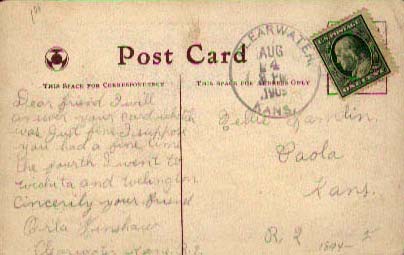 Post Card
THIS SPACE FOR CORRESPONDENCE
THIS SPACE FOR ADDRESS ONLY
CLEARWATER,
AUG
4
1909
KANS.
U.S. POSTAGE
ONE CENT
Dear friend I will
answer your card which
was just fine I suppose
you had a fine time
the fourth I went to
wichita and wellington
Sincerily your friend
Orla
Clearwater Kans. R.2
Paola
Kans.
R 2